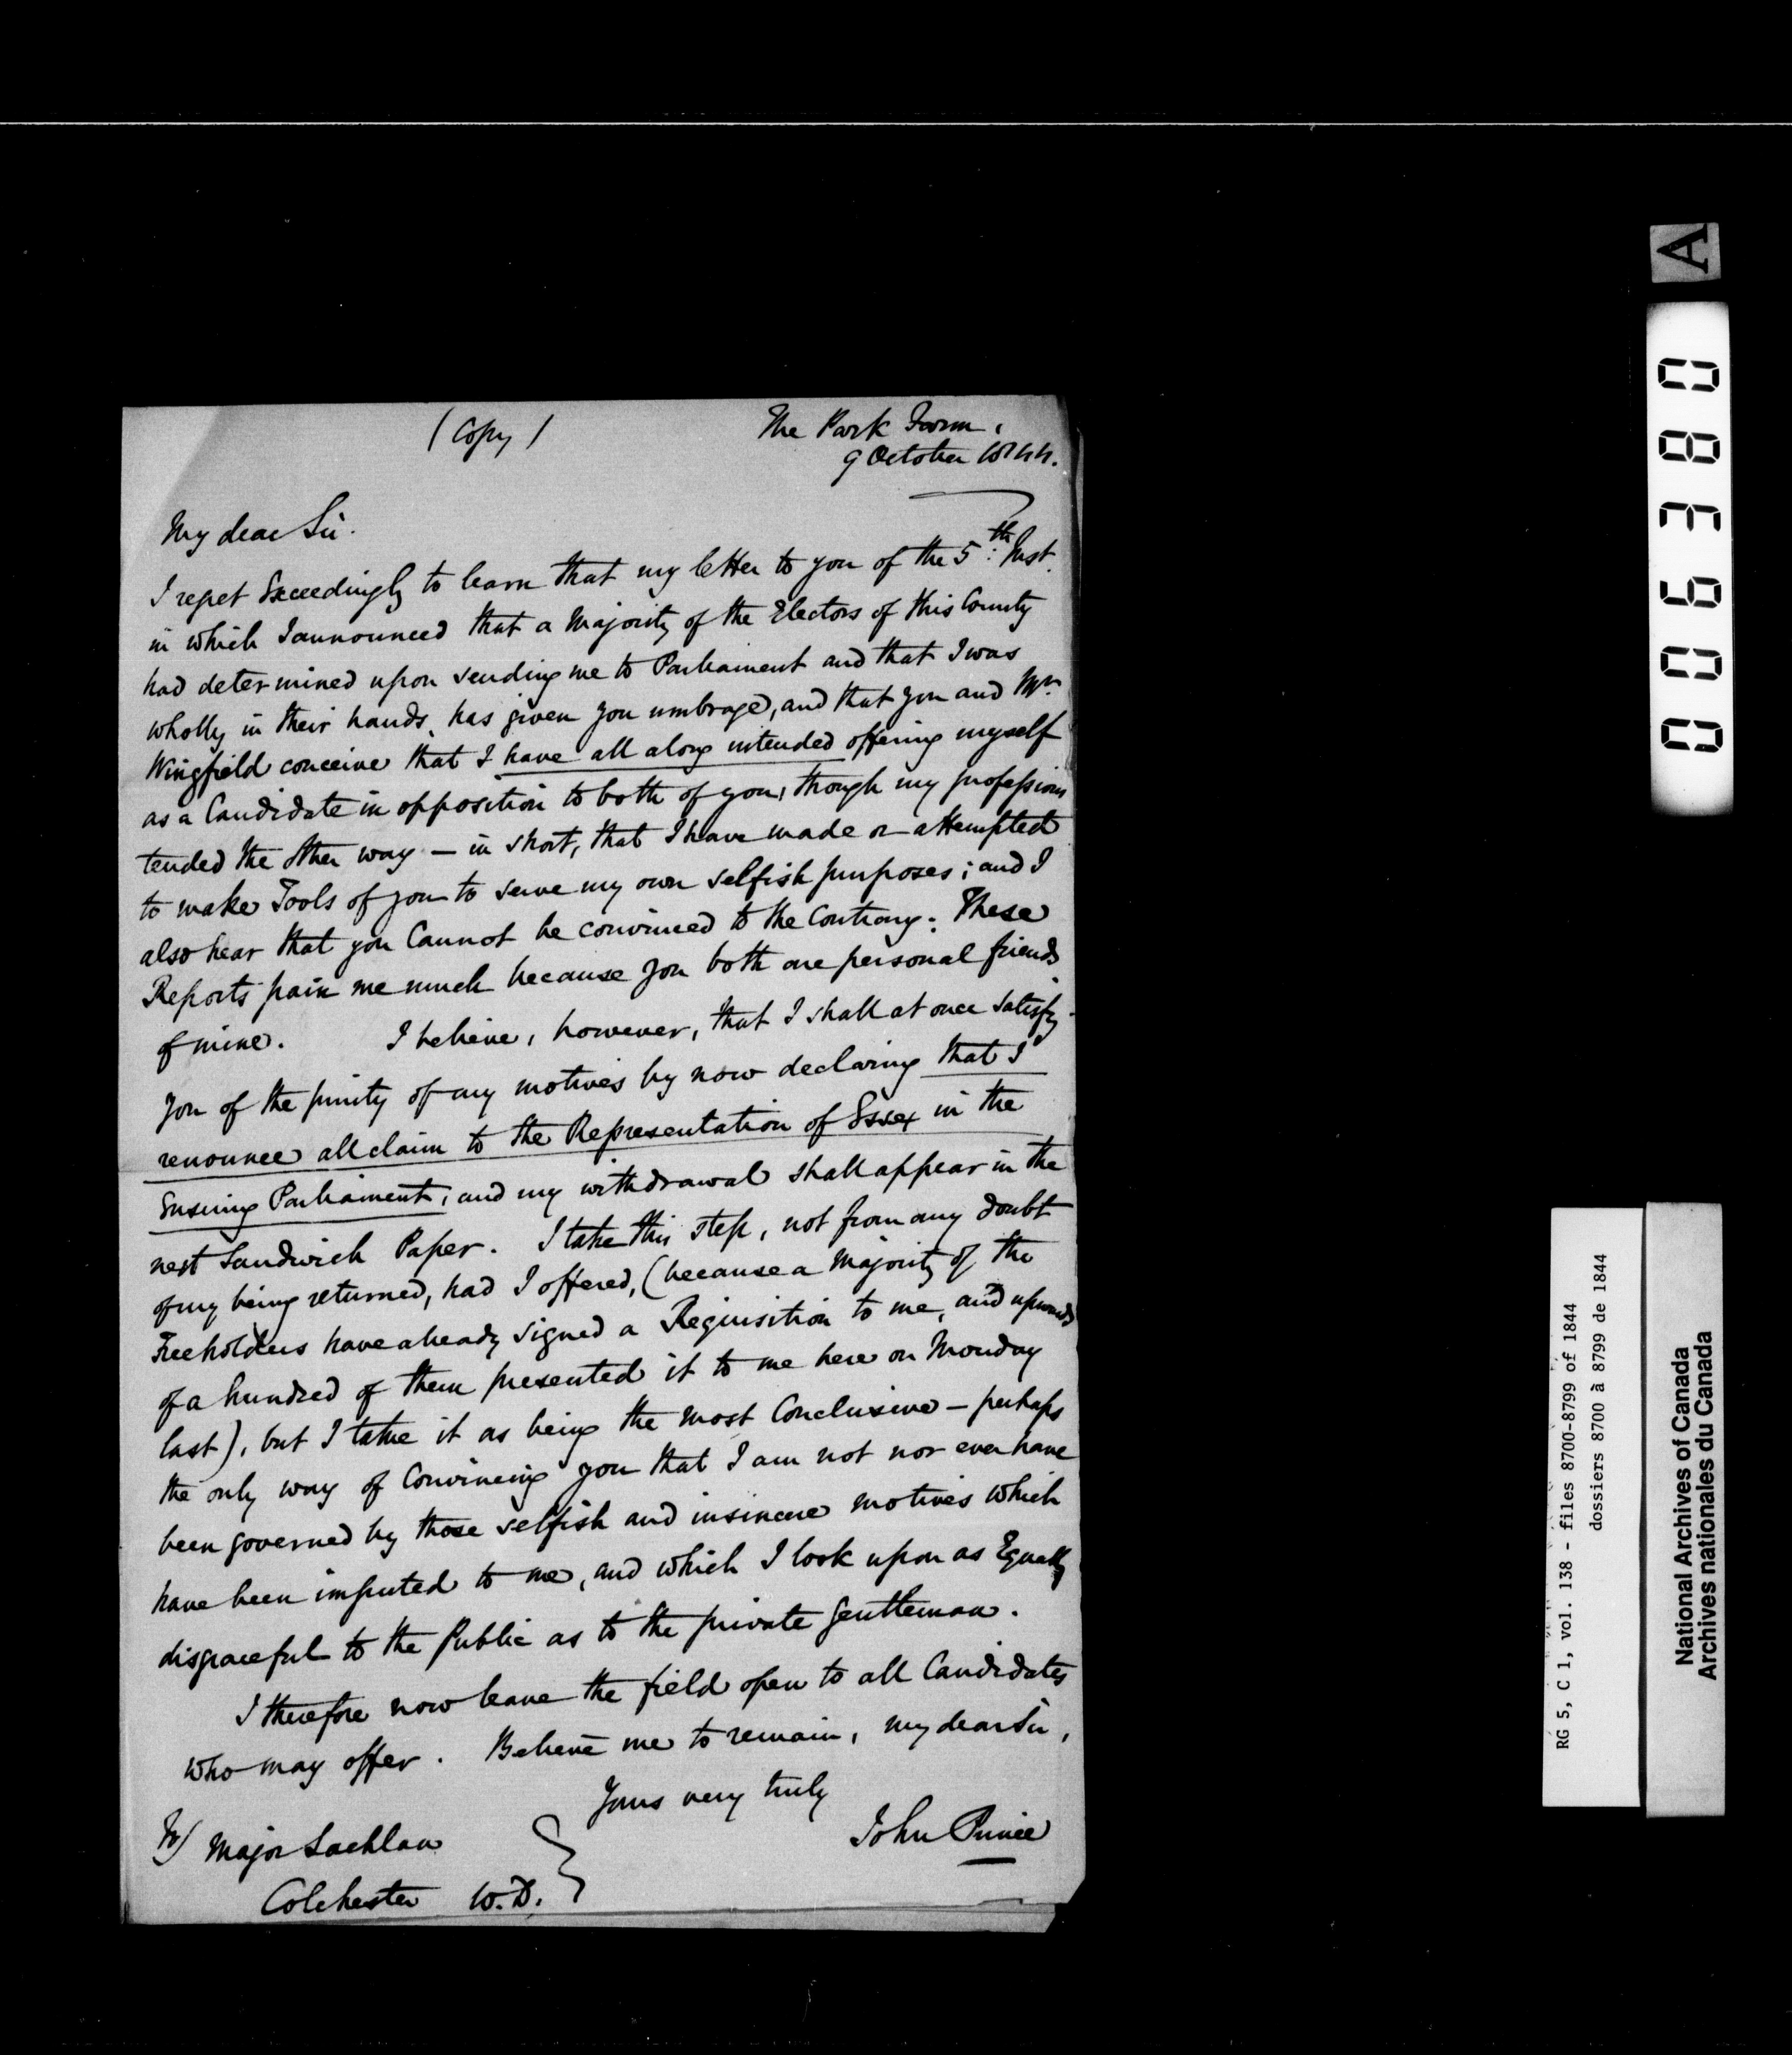 (Copy)
The Park Farm,
9 October 1844.
My dear Sir.
I regret Exceedingly to learn that my letter to you of the 5th: Inst.
in which I announced that a Majority of the Electors of this County
had determined upon sending me to Parliament and that I was
wholly in their hands, has given you umbrage, and that you and Mr.
Wingfield conceive that I have all along intended offering myself
as a Candidate in opposition to both of you, though my professions
tended the other way — in short, that I have made or attempted
to make Tools of you to serve my own selfish purposes; and I
also hear that you Cannot be convinced to the Contrary. These
Reports pain me much because you both are personal friends
of mine. I believe, however, that I shall at once satisfy
you of the purity of my motives by now declaring that I
renounce all claim to the Representation of Essex in the
Ensuing Parliament, and my withdrawal shall appear in the
next Sandwich Paper. I take this step, not from any doubt
of my being returned, had I offered, (because a Majority of the
Freeholders have already signed a Requisition to me, and upwards
of a hundred of them presented it to me here on Monday
last), but I take it as being the most Conclusive — perhaps
the only way of Convincing you that I am not nor ever have
been governed by those selfish and insincere motives which
have been imputed to me, and which I look upon as Equally
disgraceful to the Public as to the private Gentleman.
I therefore now leave the field open to all Candidates
who may offer. Believe me to remain, my dear Sir,
Yours very truly
John Prince
To/ Major Lachlan
Colchester W.D.
A
006380
RG 5, C 1, vol. 138 - files 8700-8799 of 1844
dossiers 8700 à 8799 de 1844
National Archives of Canada
Archives nationales du Canada